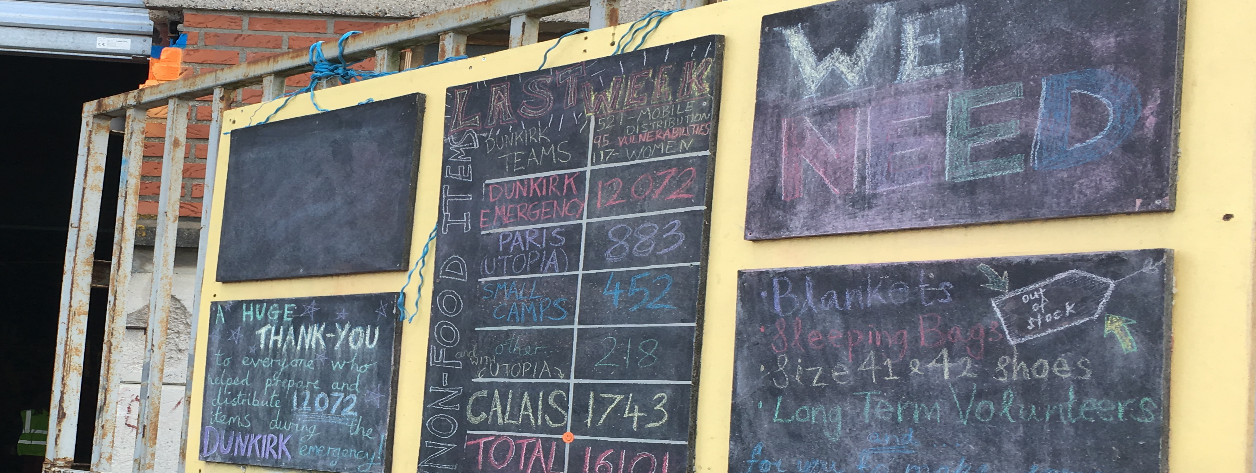 A HUGE
THANK-YOU
to everyone who
helped prepare and
distribute 12072
items during the
DUNKIRK emergency!
NON-FOOD ITEMS
LAST WEEK
DUNKIRK TEAMS
MOBILE
DISTRIBUTION
45 VULNERABILITIES
117 - WOMEN
DUNKIRK EMERGENCY 12072
PARIS (UTOPIA) 883
SMALL CAMPS 452
other and UTOPIA 218
CALAIS 1743
TOTAL 16101
WE
NEED
• Blankets
• Sleeping Bags
out of stock
• Size 41 & 42 shoes
• Long Term Volunteers
and
for you to make